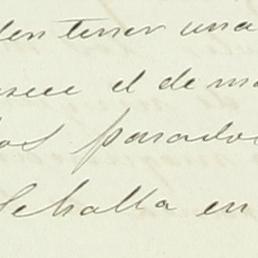 den tener una
see el de ma
los parados
se halla en